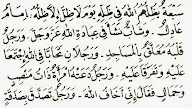 سَبْعَةٌ يُظِلُّهُمُ اللهُ فِي ظِلِّهِ يَوْمَ لَا ظِلَّ إِلَّا ظِلُّهُ: إِمَامٌ
عَادِلٌ وَشَابٌّ نَشَأَ فِي عِبَادَةِ اللهِ عَزَّ وَجَلَّ وَرَجُلٌ
قَلْبُهُ مُعَلَّقٌ بِالْمَسَاجِدِ وَرَجُلَانِ تَحَابَّا فِي اللهِ اجْتَمَعَا
عَلَيْهِ وَتَفَرَّقَا عَلَيْهِ وَرَجُلٌ دَعَتْهُ امْرَأَةٌ ذَاتُ مَنْصِبٍ
وَجَمَالٍ فَقَالَ إِنِّي أَخَافُ اللهَ وَرَجُلٌ تَصَدَّقَ بِصَدَقَةٍ